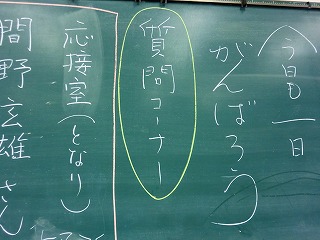 今日も一日
がんばろう
質問コーナー
応接室(となり)
間野玄雄さん